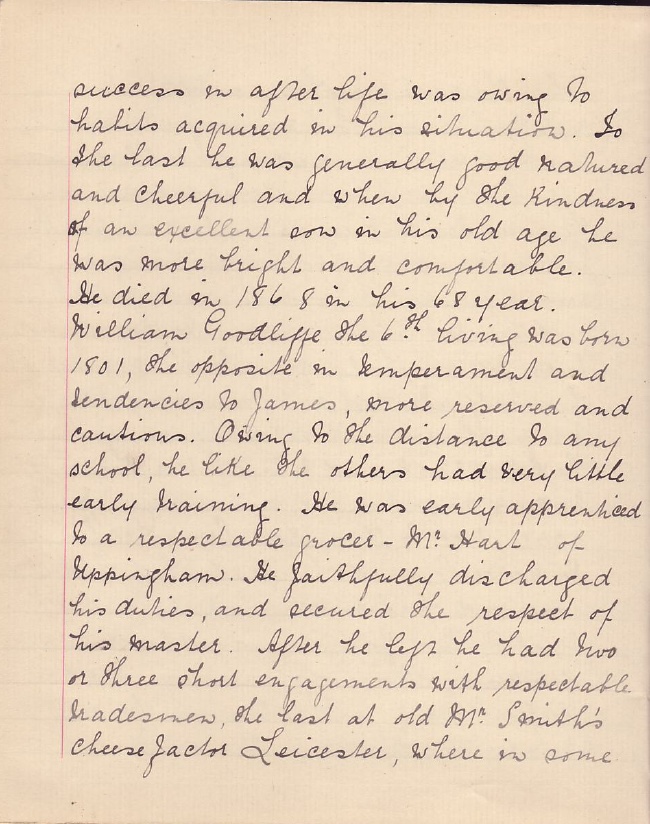 success in after life was owing to
habits acquired in his situation. To
the last he was generally good natured
and cheerful and when by the kindness
of an excellent son in his old age he
was more bright and comfortable.
He died in 1868 in his 68 year.
William Goodliffe the 6th living was born
1801, the opposite in temperament and
tendencies to James, more reserved and
cautious. Owing to the distance to any
school, he like the others had very little
early training. He was early apprenticed
to a respectable grocer - Mr Hart of
Uppingham. He faithfully discharged
his duties, and secured the respect of
his master. After he left he had two
or three short engagements with respectable
tradesmen, the last at old Mr Smith's
cheese factor Leicester, where in some